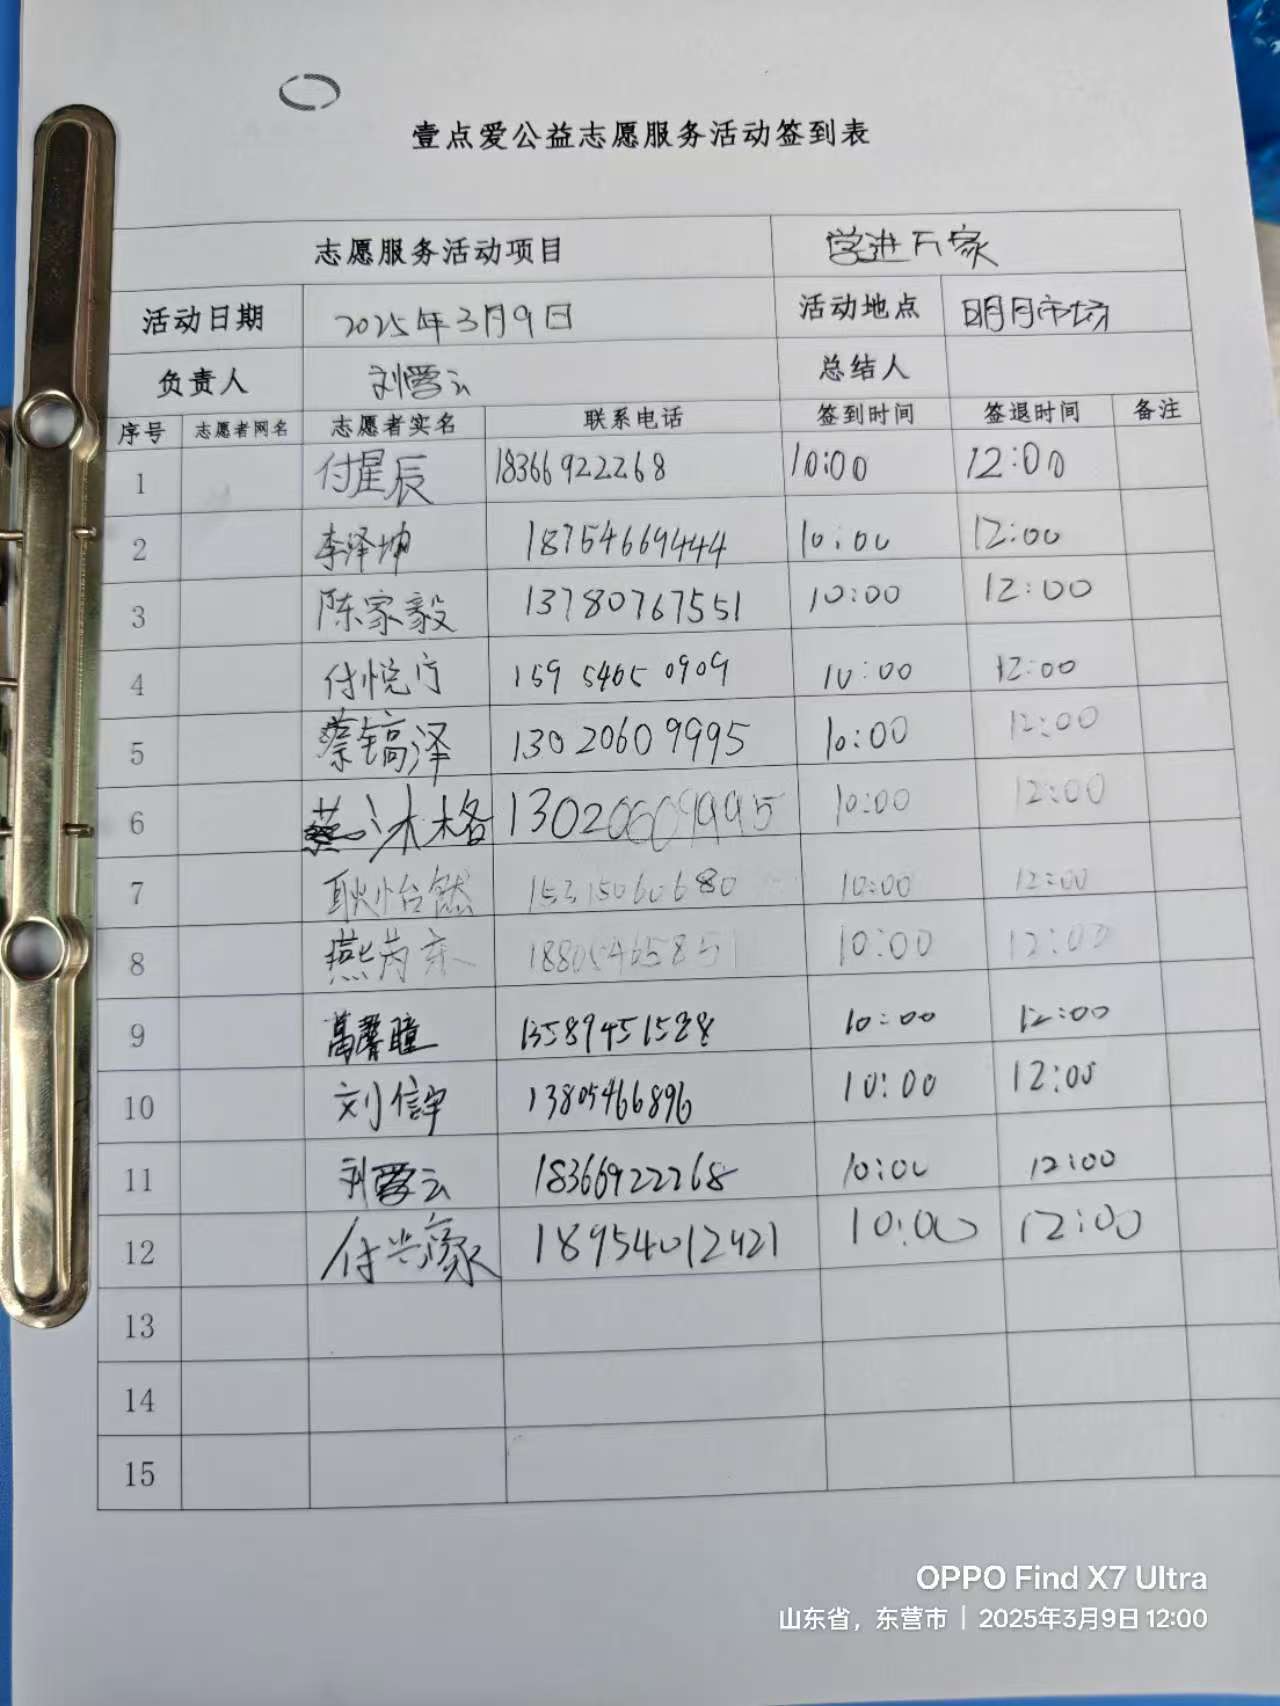 壹点爱公益志愿服务活动签到表
志愿服务活动项目 学进万家
活动日期 2025年3月9日 活动地点 明月市场
负责人 刘雪云 总结人
序号 志愿者网名 志愿者实名 联系电话 签到时间 签退时间 备注
1 付星辰 18366922268 10:00 12:00
2 李泽坤 18754669444 10:00 12:00
3 陈家毅 13780767551 10:00 12:00
4 付悦疗 159 5465 0909 10:00 12:00
5 蔡镐泽 13020609995 10:00 12:00
6 蔡沐格 13020609995 10:00 12:00
7 耿怡然 15315060680 10:00 12:00
8 燕芮 10:00 12:00
9 葛馨瞳 13589451528 10:00 12:00
10 刘信宇 13805466896 10:00 12:00
11 刘雪云 18366922268 10:00 12:00
12 付兴豪 18954012421 10:00 12:00
13
14
15
OPPO Find X7 Ultra
山东省，东营市 | 2025年3月9日 12:00